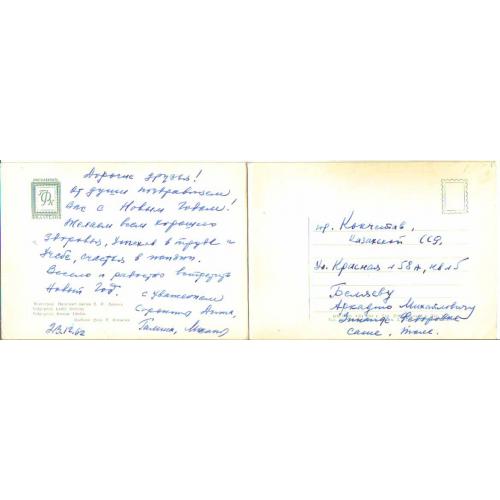 Дорогие друзья!
От души поздравляем
Вас с Новым Годом!
Желаем всем хорошего
здоровья, успехов в труде и
учебе, счастья в жизни.
Весело и радостно встретить
Новый Год.
с уважением
Анта,
Галина,
29.12.62
гр. Кокчетав,
Казахской ССР.
Ул. Красная 158А, кв 15
Беляеву
Аркадию Михайловичу
Зинаиде Федоровне
Саше, Толе.